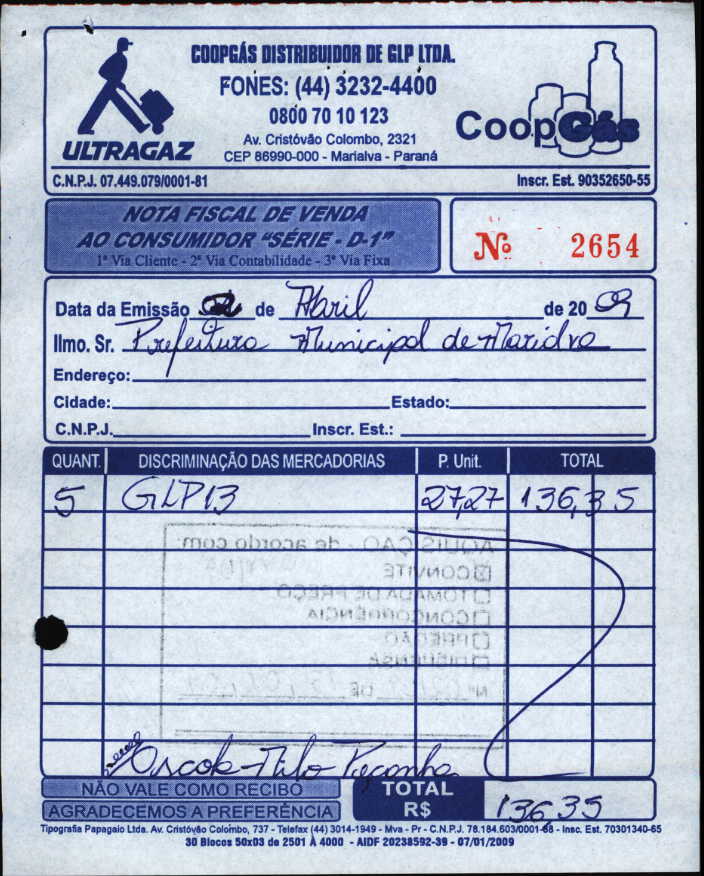 COOPGÁS DISTRIBUIDOR DE GLP LTDA.
FONES: (44) 3232-4400
0800 70 10 123
Av. Cristóvão Colombo, 2321
CEP 86990-000 - Marialva - Paraná
ULTRAGAZ
CoopGás
C.N.P.J. 07.449.079/0001-81 Inscr. Est. 90352650-55
NOTA FISCAL DE VENDA
AO CONSUMIDOR "SÉRIE - D-1"
1ª Via Cliente - 2ª Via Contabilidade - 3ª Via Fixa
Nº 2654
Data da Emissão 02 de Abril de 2009
Ilmo. Sr. Prefeitura Municipal de Marialva
Endereço:
Cidade: Estado:
C.N.P.J. Inscr. Est.:
QUANT. DISCRIMINAÇÃO DAS MERCADORIAS P. Unit. TOTAL
5 GLP13 27,27 136,35
AQUISIÇÃO - de acordo com:
CONVITE
TOMADA DE PREÇO
CONCORRÊNCIA
PREGÃO
DISPENSA
Nº DE
Escola Nilo Peçanha
NÃO VALE COMO RECIBO
AGRADECEMOS A PREFERÊNCIA
TOTAL R$ 136,35
Tipografia Papagaio Ltda. Av. Cristóvão Colombo, 737 - Telefax (44) 3014-1949 - Mva - Pr - C.N.P.J. 78.184.603/0001-68 - Insc. Est. 70301340-65
30 Blocos 50x03 de 2501 À 4000 - AIDF 20238592-39 - 07/01/2009